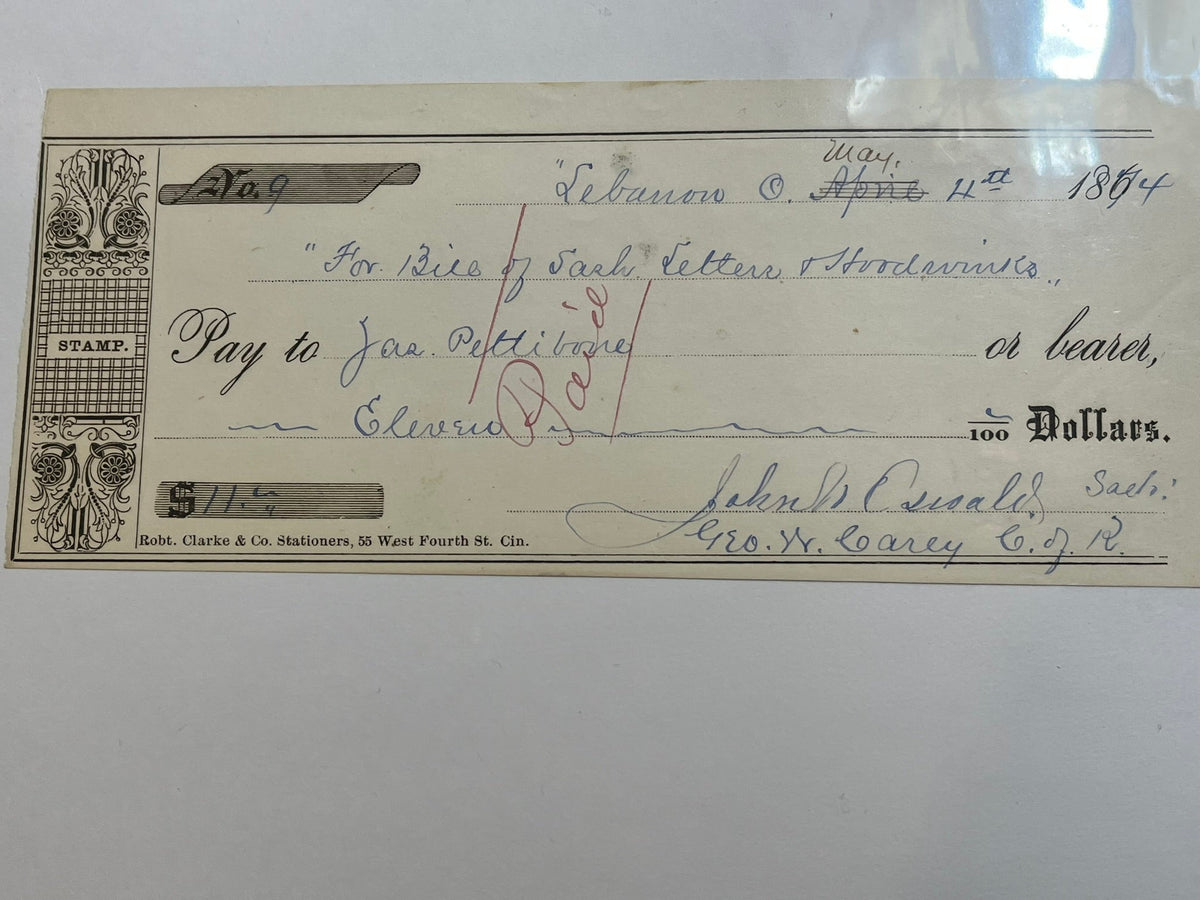 May.
No. 9 "Lebanon O. April 4th 1874
"For Bill of Sash Letters & Hoodwinks"
STAMP.
Pay to Jas. Pettibone or bearer,
Paid
Eleven /100 Dollars.
$11.
John W Oswald Sach:
Geo. W. Carey C. of R.
Robt. Clarke & Co. Stationers, 55 West Fourth St. Cin.